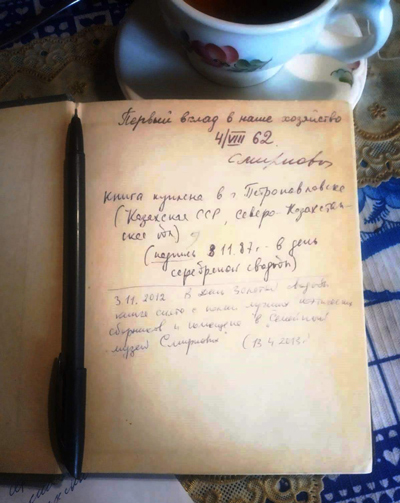 Первый вклад в наше хозяйство
4/VIII 62.
Смирновы
Книга куплена в г. Петропавловске
(Казахская ССР, Северо-Казахстан-
ская обл)
(надпись 8.11.87 г. в день
серебряной свадьбы)
3.11.2012. В день Золотой свадьбы
книга
сборников и помещена в Семейный
музей Смирновых (13.4.2013г